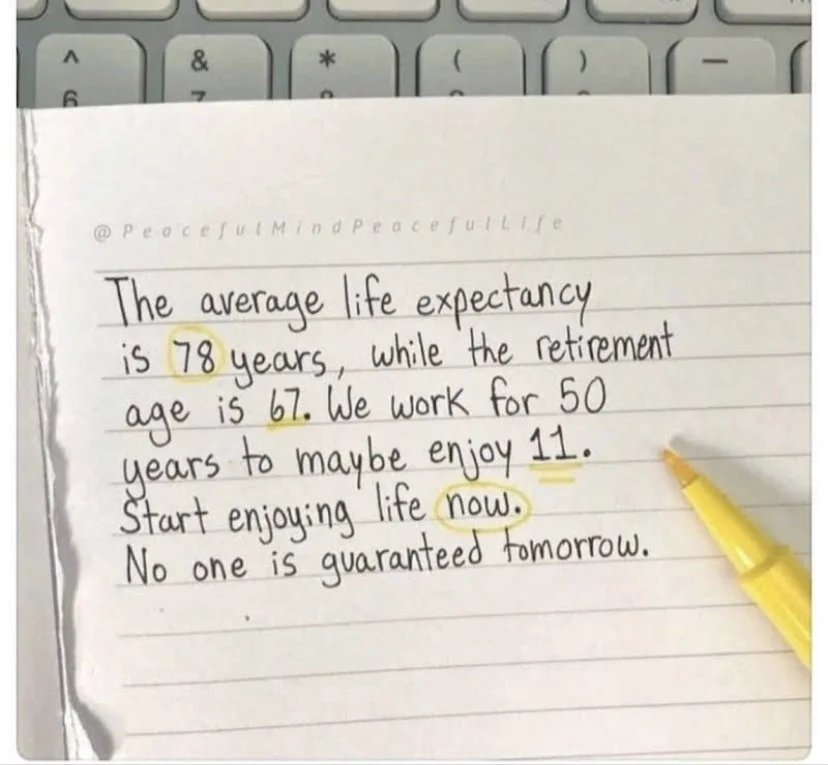 ^ & * ( ) —
6 7
@PeacefulMindPeacefulLife
The average life expectancy
is 78 years, while the retirement
age is 67. We work for 50
years to maybe enjoy 11.
Start enjoying life now.
No one is guaranteed tomorrow.